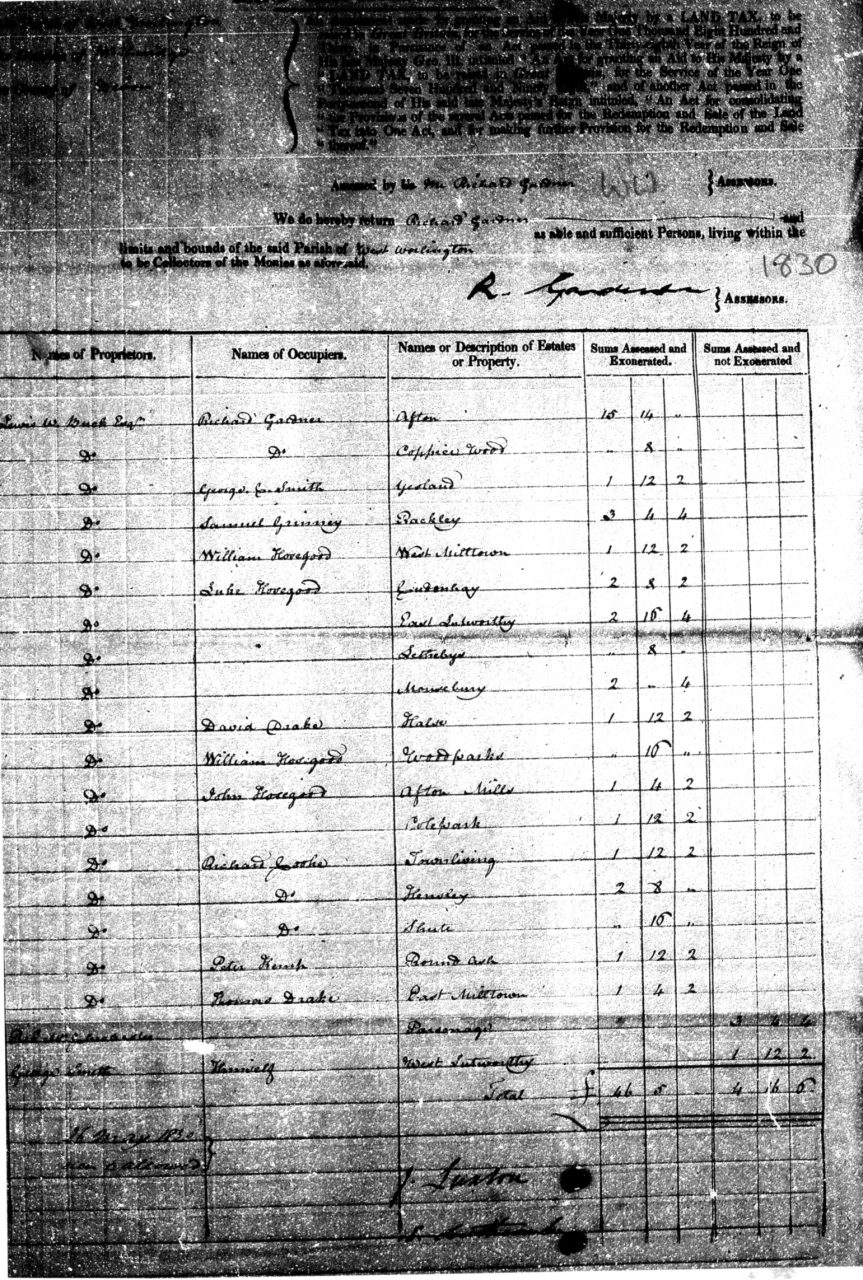 An assessment made for granting an Aid to His Majesty by a LAND TAX, to be
raised in Great Britain, for the Service of the Year One Thousand Eight Hundred and
Thirty, in Pursuance of an Act passed in the Thirty-eighth Year of the Reign of
His late Majesty Geo. III. intituled "An Act for granting an Aid to His Majesty by a
"LAND TAX, to be raised in Great Britain, for the Service of the Year One
"Thousand Seven Hundred and Ninety and of another Act passed in the
Forty-second of His said late Majesty's Reign intituled, "An Act for consolidating
"the Provisions of the several Acts passed for the Redemption and Sale of the Land
"Tax into One Act, and for making further Provision for the Redemption and Sale
"thereof."
Assessed by Mr Richard Gardner WW } ASSESSORS.
We do hereby return Richard Gardner and
as able and sufficient Persons, living within the
limits and bounds of the said Parish of West Worlington
to be Collectors of the Monies as aforesaid.
1830
R. Gardner } ASSESSORS.
Names of Proprietors. Names of Occupiers. Names or Description of Estates or Property. Sums Assessed and Exonerated. Sums Assessed and not Exonerated
Lewis W. Buck Esqr Richard Gardner Afton 15 14 "
Do Do Coppice Wood " 8 "
Do George Smith Yeoland 1 12 2
Do Samuel Rackley 3 4 4
Do William Hosegood West Milltown 1 12 2
Do Luke Hosegood 2 8 2
Do East Lutworthy 2 16 4
Do Lethebys " 8 "
Do Mousebury 2 " 4
Do David Drake Halse 1 12 2
Do William Hosegood Woodparks " 16 "
Do John Hosegood Afton Mills 1 4 2
Do Colepark 1 12 2
Do Richard Cooke Townliving 1 12 2
Do Do Hensley 2 8 "
Do Do Shute " 16 "
Do Peter Kemp Round Ash 1 12 2
Do Thomas Drake East Milltown 1 4 2
Parsonage " 3 4 4
George Smith Himself West Lutworthy 1 12 2
Total 46 5 4 16 6
26 May 1830
allowed
J. Luxton